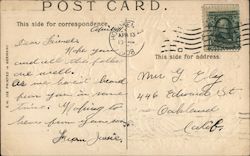 POST CARD.
This side for correspondence.
This side for address.
Dear Friends
Hope you
and all the folks
are well.
As we haven't heard
from you in some
time. Hoping to
hear from you soon
From Junie.
Mrs G. F. Ely
446 Edwards St
Oakland
Calif.